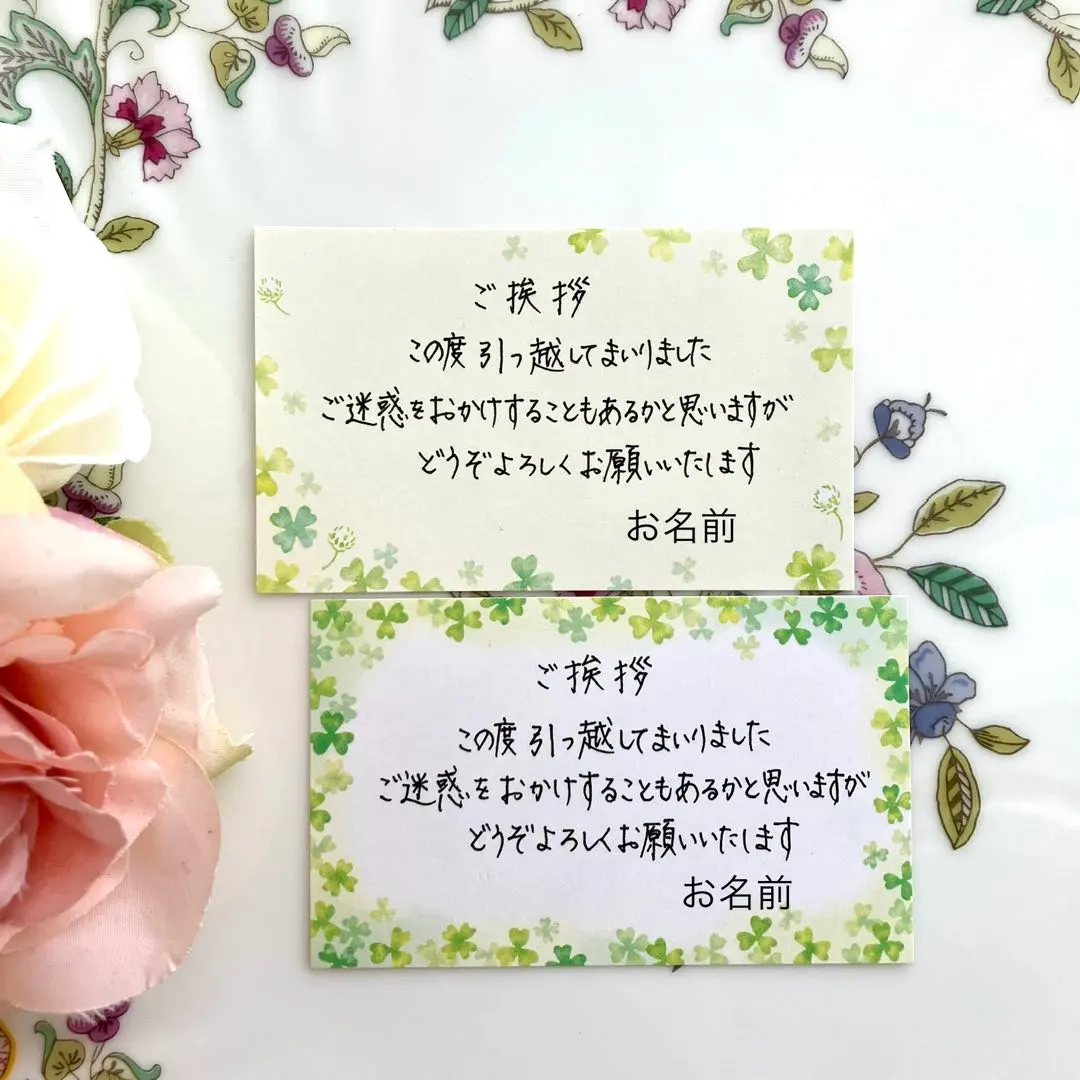 ご挨拶
この度引っ越してまいりました
ご迷惑をおかけすることもあるかと思いますが
どうぞよろしくお願いいたします
お名前
ご挨拶
この度引っ越してまいりました
ご迷惑をおかけすることもあるかと思いますが
どうぞよろしくお願いいたします
お名前